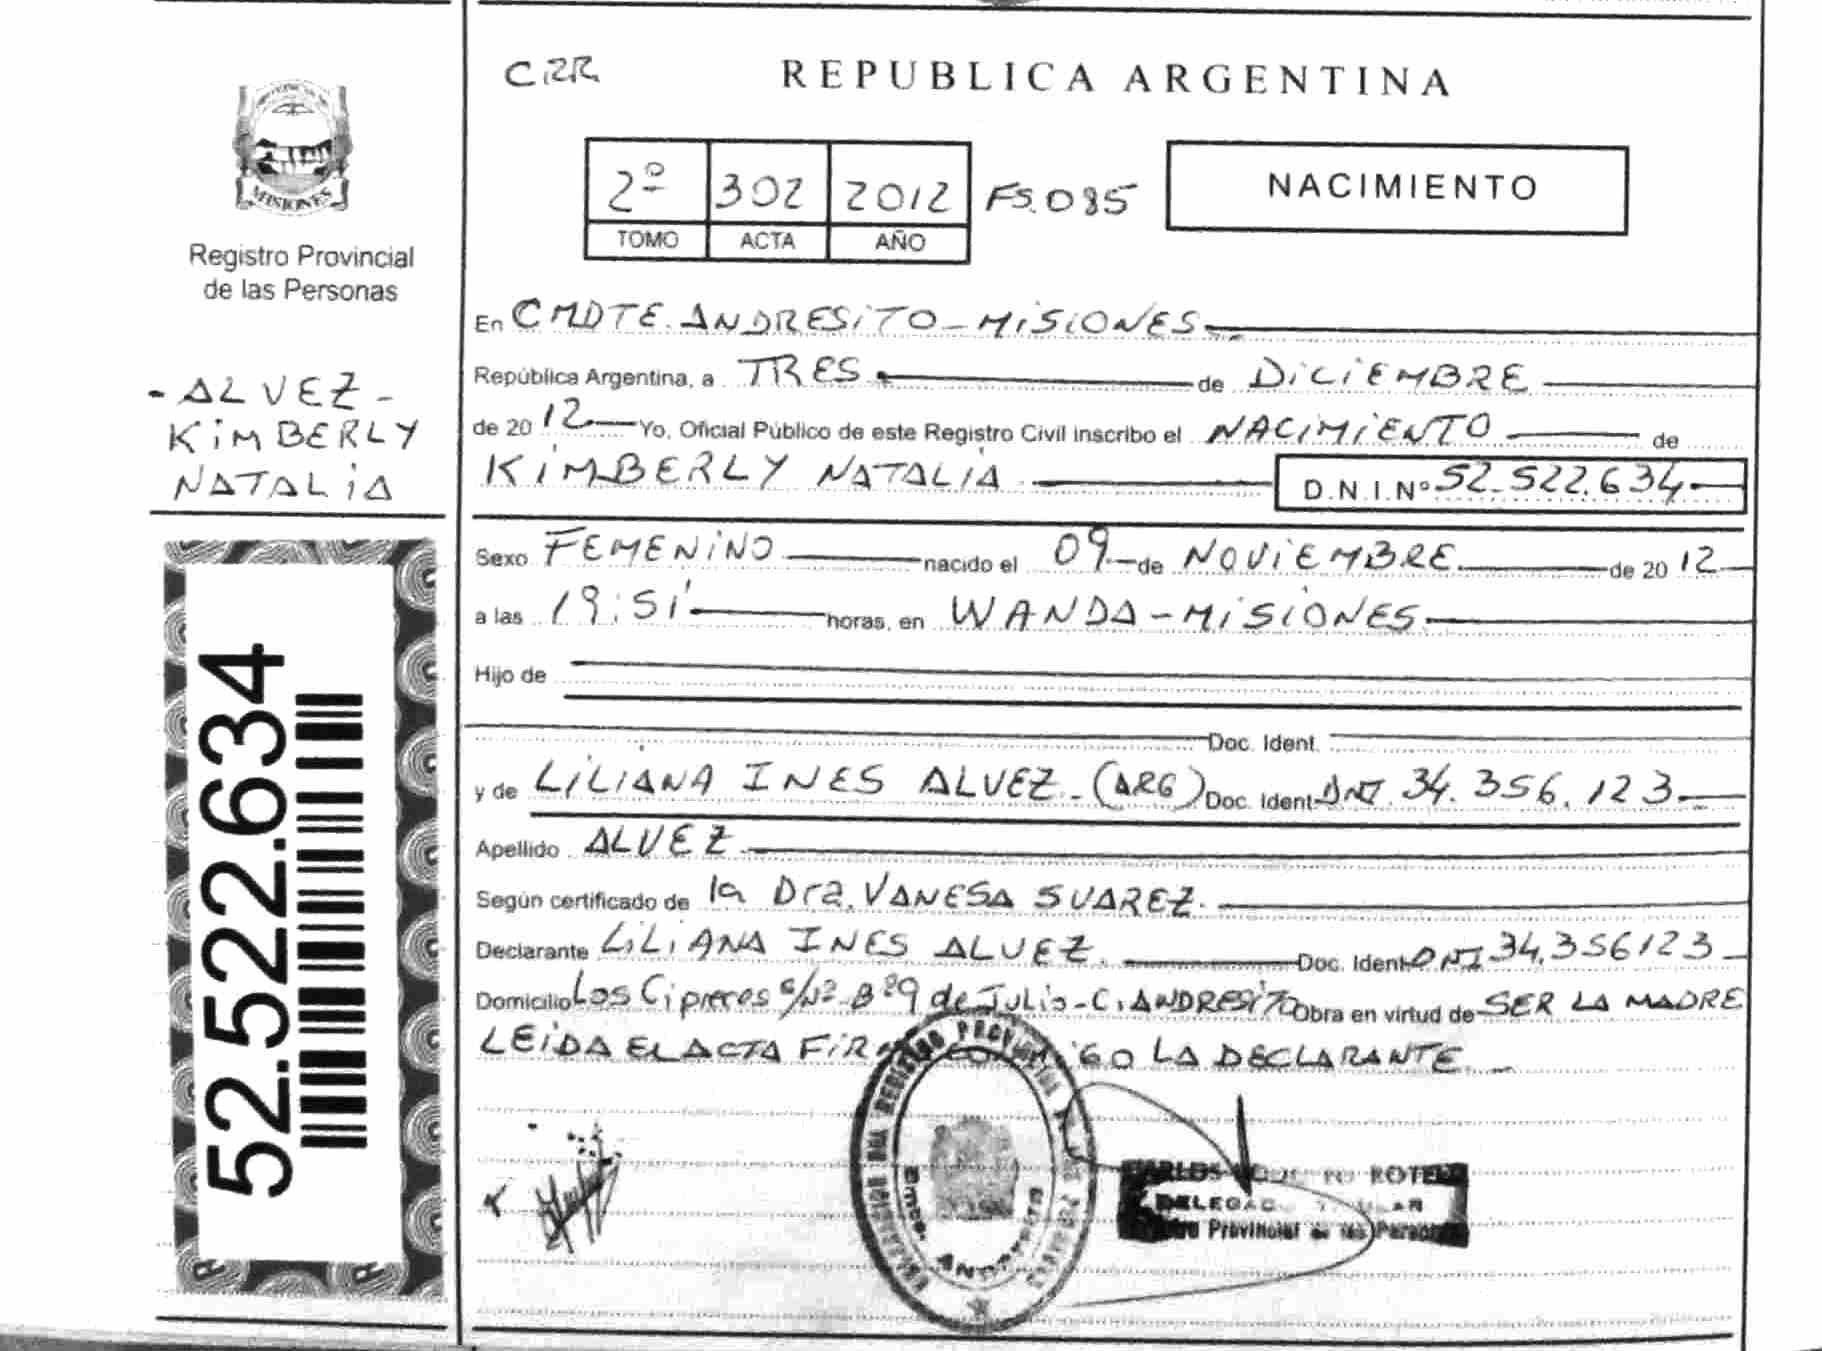 MISIONES
Registro Provincial
de las Personas
- ALVEZ -
KIMBERLY
NATALIA
52.522.634
CRR
REPUBLICA ARGENTINA
2º 302 2012 FS.085
TOMO ACTA AÑO
NACIMIENTO
En CMDTE. ANDRESITO - MISIONES
República Argentina, a TRES de DICIEMBRE
de 2012 Yo, Oficial Público de este Registro Civil inscribo el NACIMIENTO de
KIMBERLY NATALIA D.N.I.Nº 52.522.634
Sexo FEMENINO nacido el 09 de NOVIEMBRE de 2012
a las 19:51' horas, en WANDA - MISIONES
Hijo de
Doc. Ident.
y de LILIANA INES ALVEZ - (ARG) Doc. Ident DNI. 34.356.123
Apellido ALVEZ
Según certificado de la Dra. VANESA SUAREZ.
Declarante LILIANA INES ALVEZ. Doc. Ident DNI 34.356123
Domicilio Los Cipreces S/Nº - Bº 9 de JULIO - C. ANDRESITO Obra en virtud de SER LA MADRE
LEIDA EL ACTA LA DECLARANTE
REGISTRO
ANDRESITO
CARLOS
Provincial de las Personas